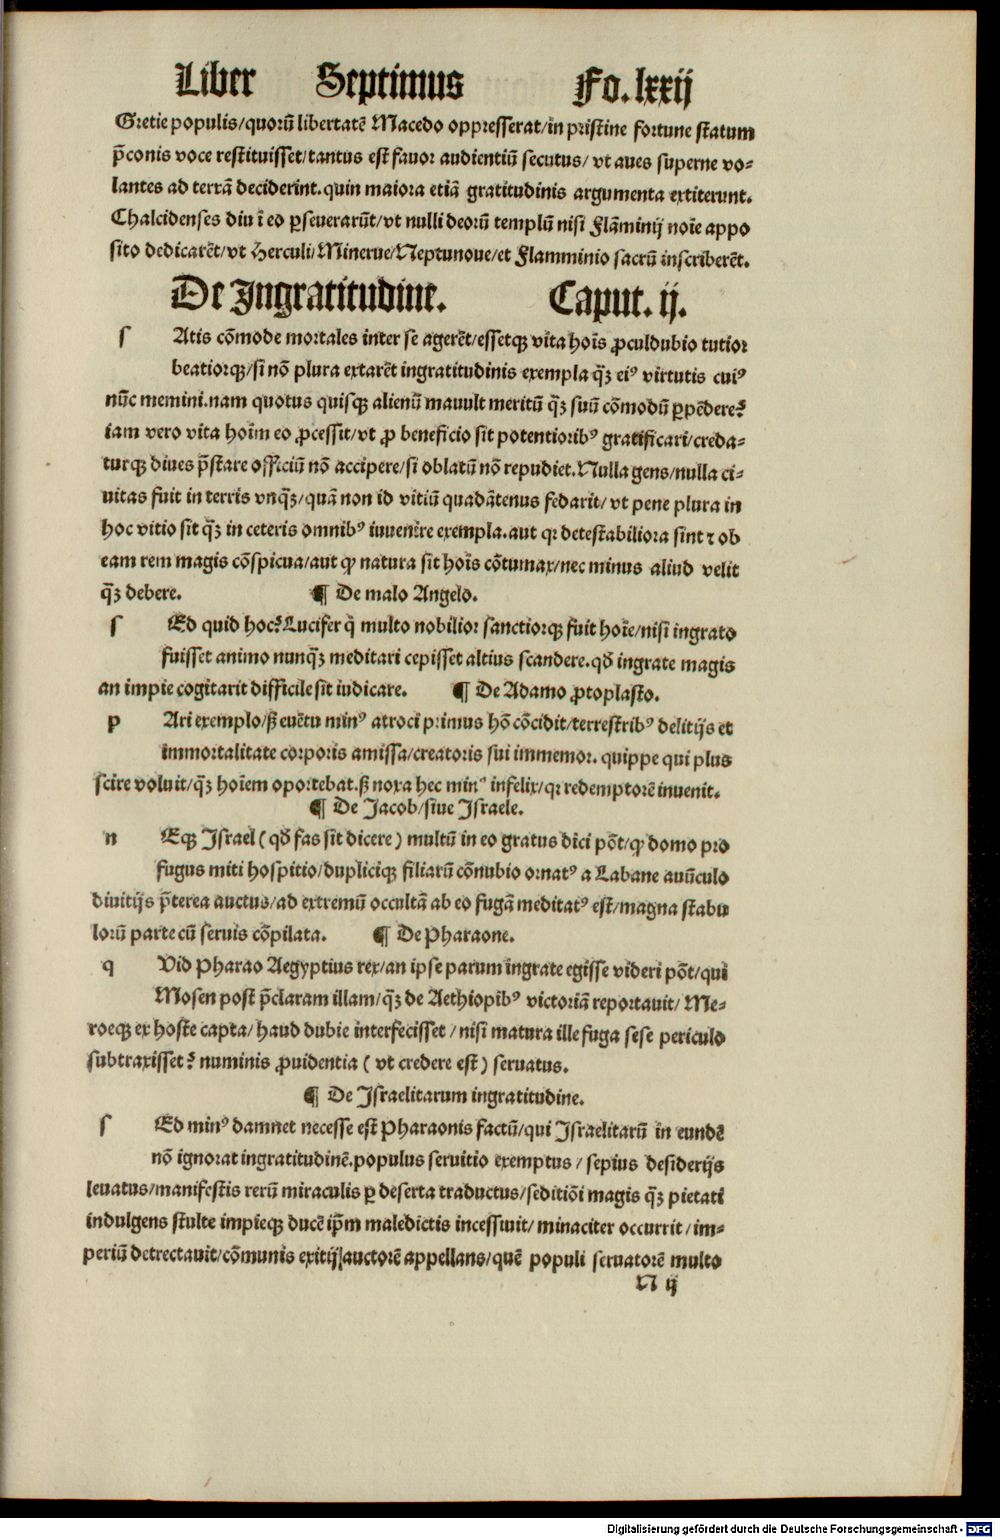 Liber Septimus Fo. lxxij
Gretie populis/quorū libertatē Macedo oppresserat/in pristine fortune statum
p̄conis voce restituisset/tantus est fauor audientiū secutus/ vt aues superne vo-
lantes ad terrā deciderint. quin maiora etiā gratitudinis argumenta extiterunt.
Chalcidenses diu ī eo ꝑseuerarūt/vt nulli deorū templū nisi Flāminij noīe appo
sito dedicarēt/vt Herculi/Minerue/Neptunoue/et Flamminio sacrū inscriberēt.
De Ingratitudine. Caput. ij.
s Atis cōmode mortales inter se agerēt/essetqꝫ vita hoīs ꝓculdubio tutior
beatiorqꝫ/si nō plura extarēt ingratitudinis exempla q̄ꝫ eiꝰ virtutis cuiꝰ
nūc memini. nam quotus quisqꝫ alienū mauult meritū q̄ꝫ suū cōmodū ꝑpēdere?
iam vero vita hoīm eo ꝓcessit/vt ꝓ beneficio sit potentioribꝰ gratificari/creda-
turqꝫ diues p̄stare officiū nō accipere/si oblatū nō repudiet. Nulla gens/nulla ci-
uitas fuit in terris vnq̄ꝫ/quā non id vitiū quadātenus fedarit/ vt pene plura in
hoc vitio sit q̄ꝫ in ceteris omnibꝰ iuuenire exempla. aut qꝛ detestabiliora sint ⁊ ob
eam rem magis cōspicua/aut ꝙ natura sit hoīs cōtumax/nec minus aliud velit
q̄ꝫ debere. ¶ De malo Angelo.
s Ed quid hoc? Lucifer q̄ multo nobilior sanctiorqꝫ fuit hoīe/nisi ingrato
fuisset animo nunq̄ꝫ meditari cepisset altius scandere. qð ingrate magis
an impie cogitarit difficile sit iudicare. ¶ De Adamo ꝓtoplasto.
p Ari exemplo/ꝭ euētu minꝰ atroci primus hō cōcidit/terrestribꝰ delitijs et
immortalitate corporis amissa/creatoris sui immemor. quippe qui plus
scire voluit/q̄ꝫ hoīem oportebat. ꝭ noxa hec minꝰ infelix/qꝛ redemptorē inuenit.
¶ De Jacob/siue Israele.
n Eqꝫ Israel (qð fas sit dicere) multū in eo gratus dici pōt/ꝙ domo pro
fugus miti hospitio/dupliciqꝫ filiarū cōnubio ornatꝰ a Labane auūculo
diuitijs p̄terea auctus/ad extremū occultā ab eo fugā meditatꝰ est/magna stabu
lorū parte cū seruis cōpilata. ¶ De Pharaone.
q Vid Pharao Aegyptius rex/an ipse parum ingrate egisse videri pōt/qui
Mosen post p̄claram illam/q̄ꝫ de Aethiopibꝰ victoriā reportauit/ Me-
roeqꝫ ex hoste capta/ haud dubie interfecisset / nisi matura ille fuga sese periculo
subtraxisset? numinis ꝓuidentia ( vt credere est ) seruatus.
¶ De Israelitarum ingratitudine.
s Ed minꝰ damnet necesse est Pharaonis factū/qui Israelitarū in eundē
nō ignorat ingratitudinē. populus seruitio exemptus / sepius desiderijs
leuatus/manifestis rerū miraculis ꝑ deserta traductus/seditiōi magis q̄ꝫ pietati
indulgens stulte impieqꝫ ducē ip̄m maledictis incessiuit/ minaciter occurrit / im-
periū detrectauit/cōmunis exitij auctorē appellans/quē populi seruatorē multo
N ij
Digitalisierung gefördert durch die Deutsche Forschungsgemeinschaft - DFG